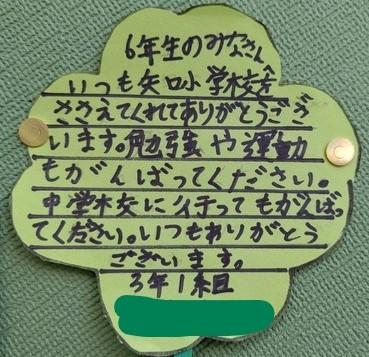 6年生のみなさん
いつも矢口小学校を
ささえてくれてありがとうござ
います。勉強や運動
もがんばってください。
中学校に行ってもがんばっ
てください。いつもありがとう
ございます。
3年1組